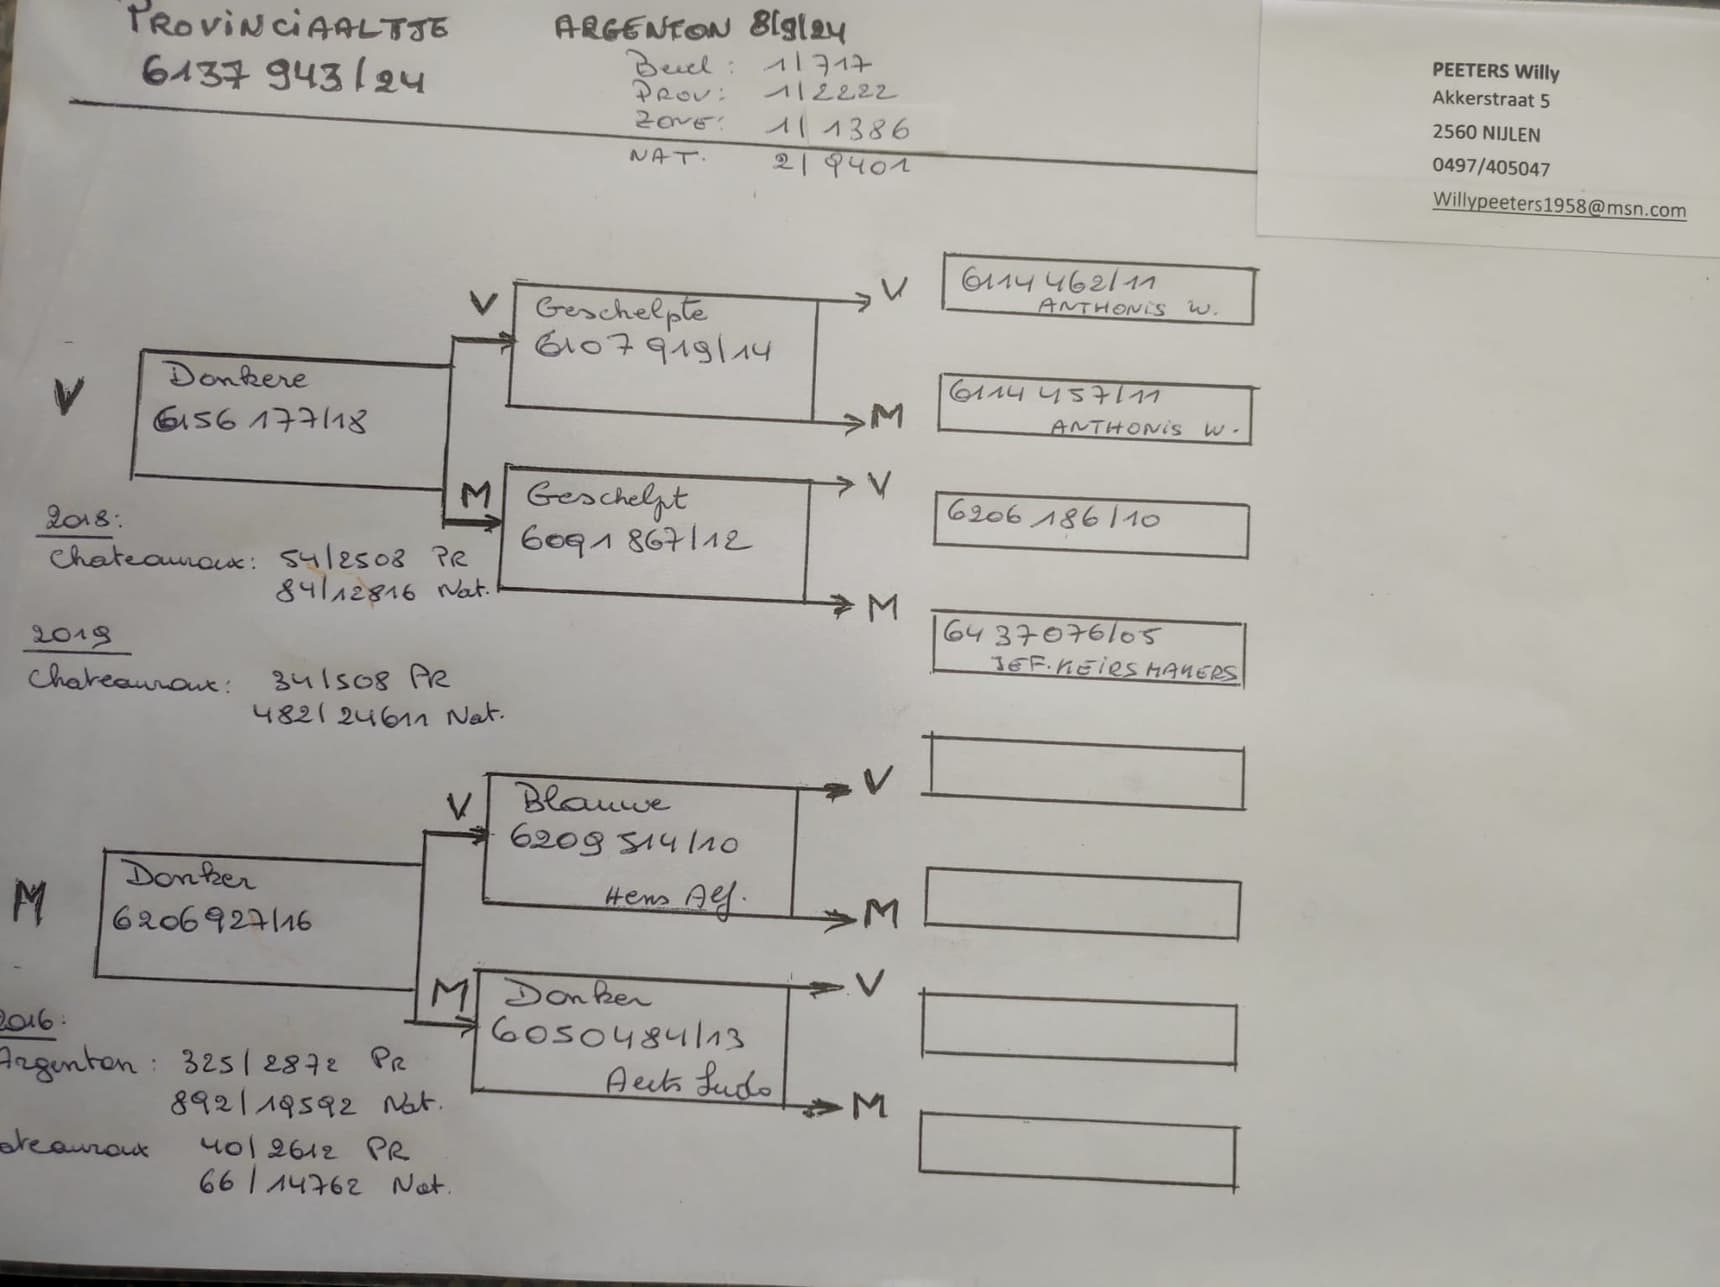 PROVINCIAALTJE
6137 943/24
ARGENTON 8/9/24
1/717
PROV: 1/2222
ZONE: 1/1386
NAT. 2/9401
PEETERS Willy
Akkerstraat 5
2560 NIJLEN
0497/405047
Willypeeters1958@msn.com
V
Donkere
6156 177/18
V
Geschelpte
6107 919/14
V
6114 462/11
ANTHONIS W.
M
6114 457/11
ANTHONIS W.
M
Geschelpt
6091 867/12
V
6206 186/10
M
6437076/05
JEF. KEIRSMAKERS
2018:
Chateauroux: 54/2508 PR
84/12816 Nat.
2019
Chateauroux: 34/508 PR
482/24611 Nat.
M
Donker
6206927/16
V
Blauwe
6209 514/10
Hens Alf.
V
M
M
Donker
6050484/13
Aerts Ludo
V
M
2016:
Argenton: 325/2872 PR
892/19592 Nat.
ateauroux 40/2612 PR
66/14762 Nat.